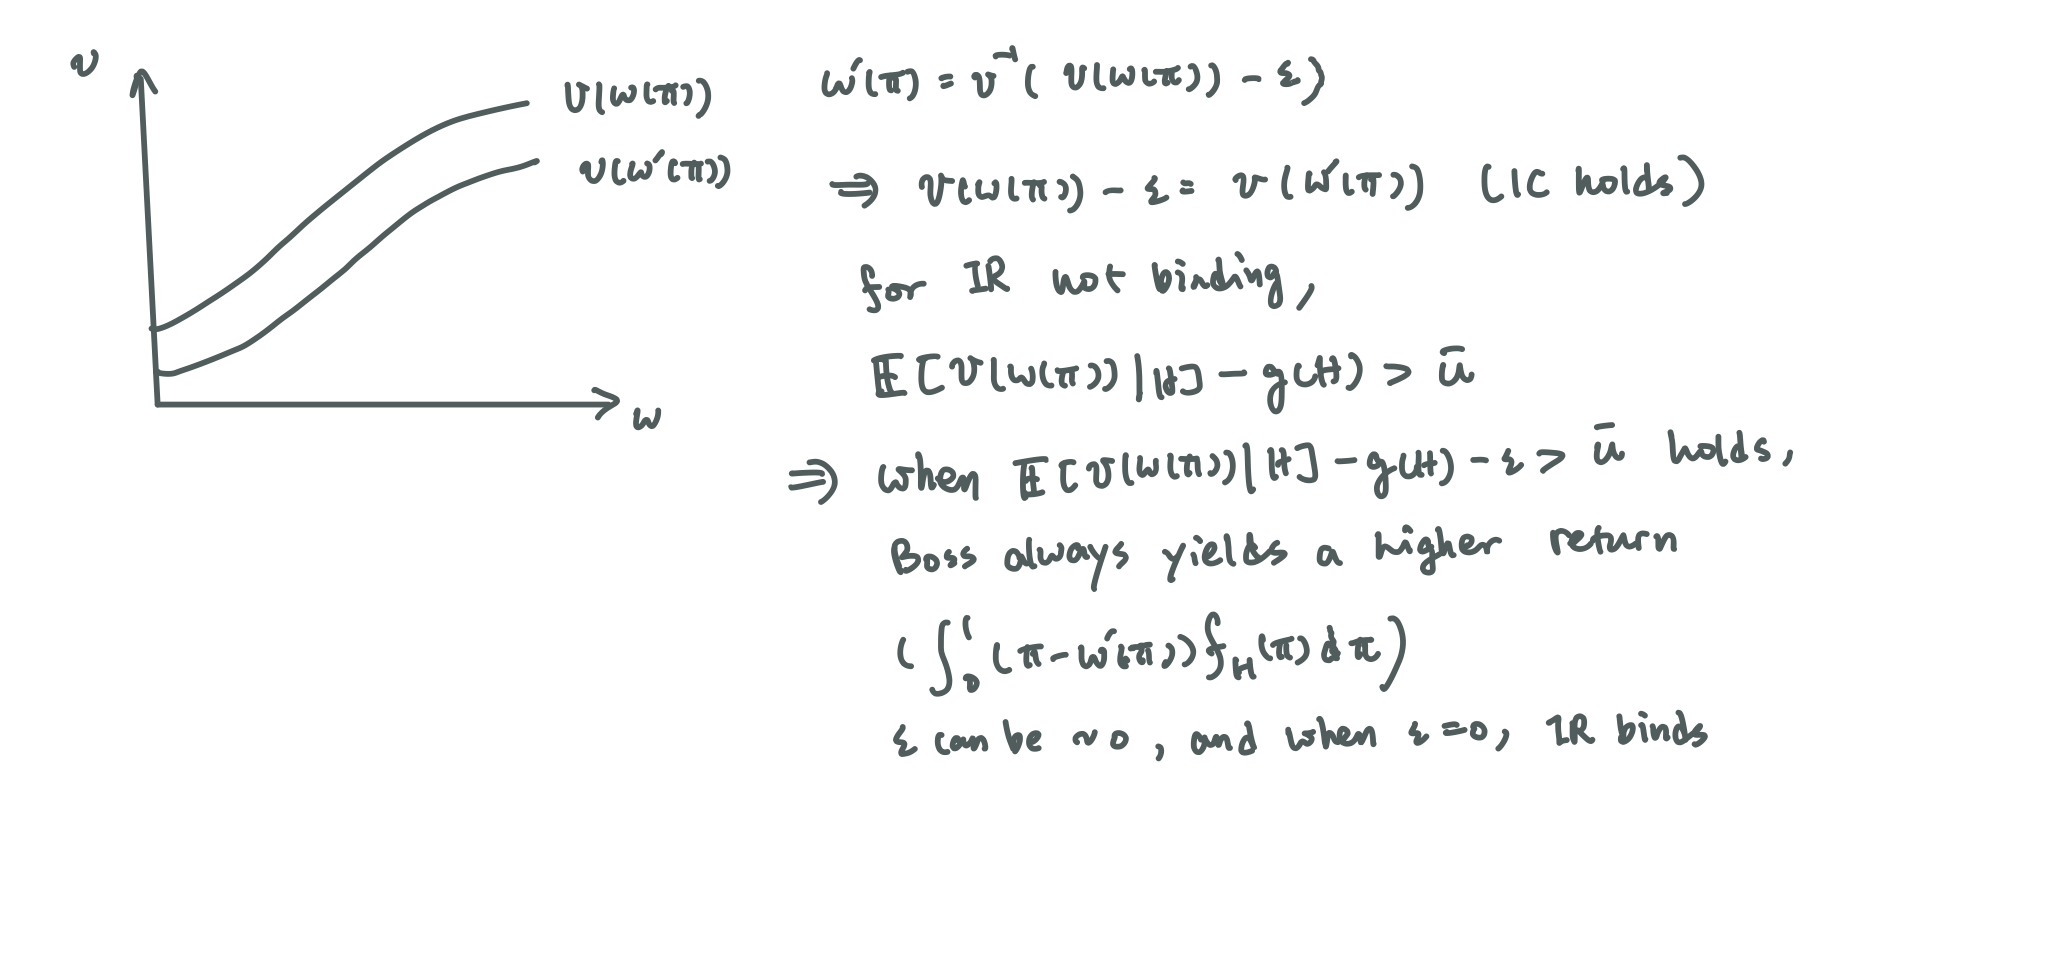 v
v(w(π))
v(w'(π))
w
w'(π) = v⁻¹( v(w(π)) - ε)
⇒ v(w(π)) - ε = v(w'(π)) (IC holds)
for IR not binding,
𝔼[v(w(π))|H] - g(H) > ū
⇒ when 𝔼[v(w(π))|H] - g(H) - ε > ū holds,
Boss always yields a higher return
(∫₀¹ (π - w'(π)) f_H(π) dπ)
ε can be ~0, and when ε=0, IR binds